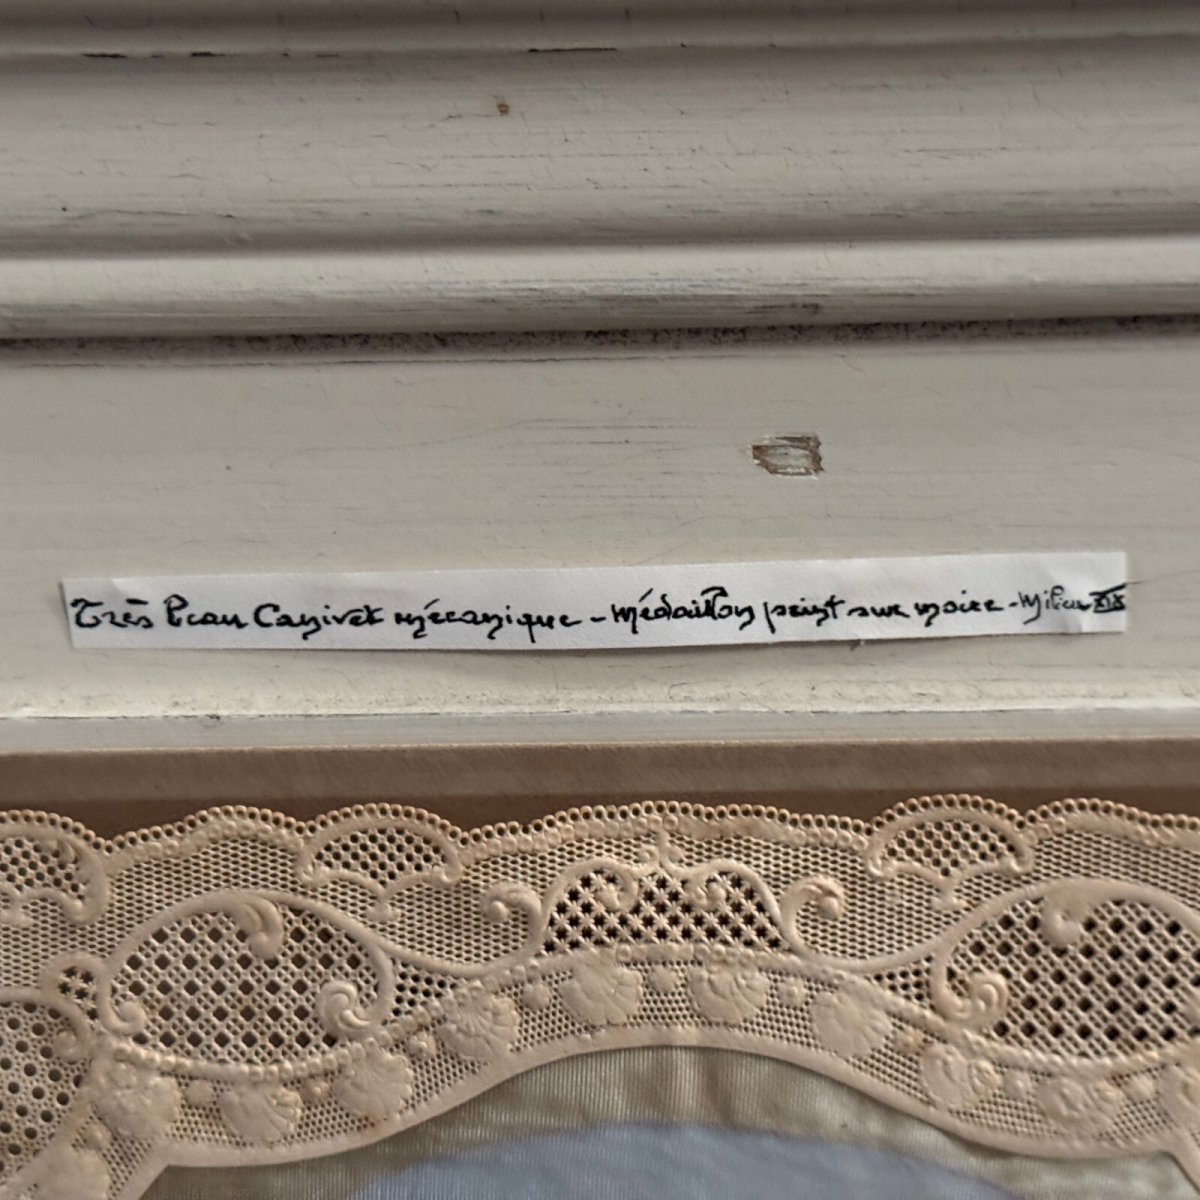 Très beau Canivet mécanique - Médaillon peint sur moire - Milieu XIX